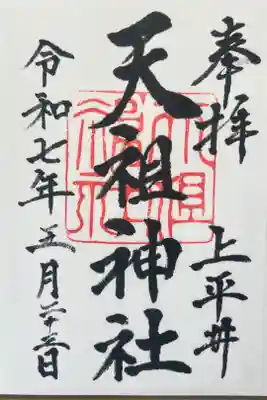 奉拝
上平井
天祖神社
令和七年五月二十三日